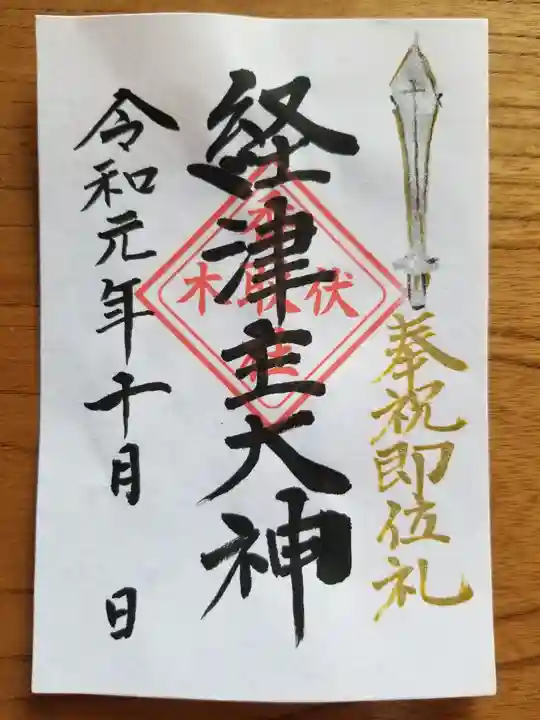 奉祝即位礼
経津主大神
伏
木
令和元年十月　日